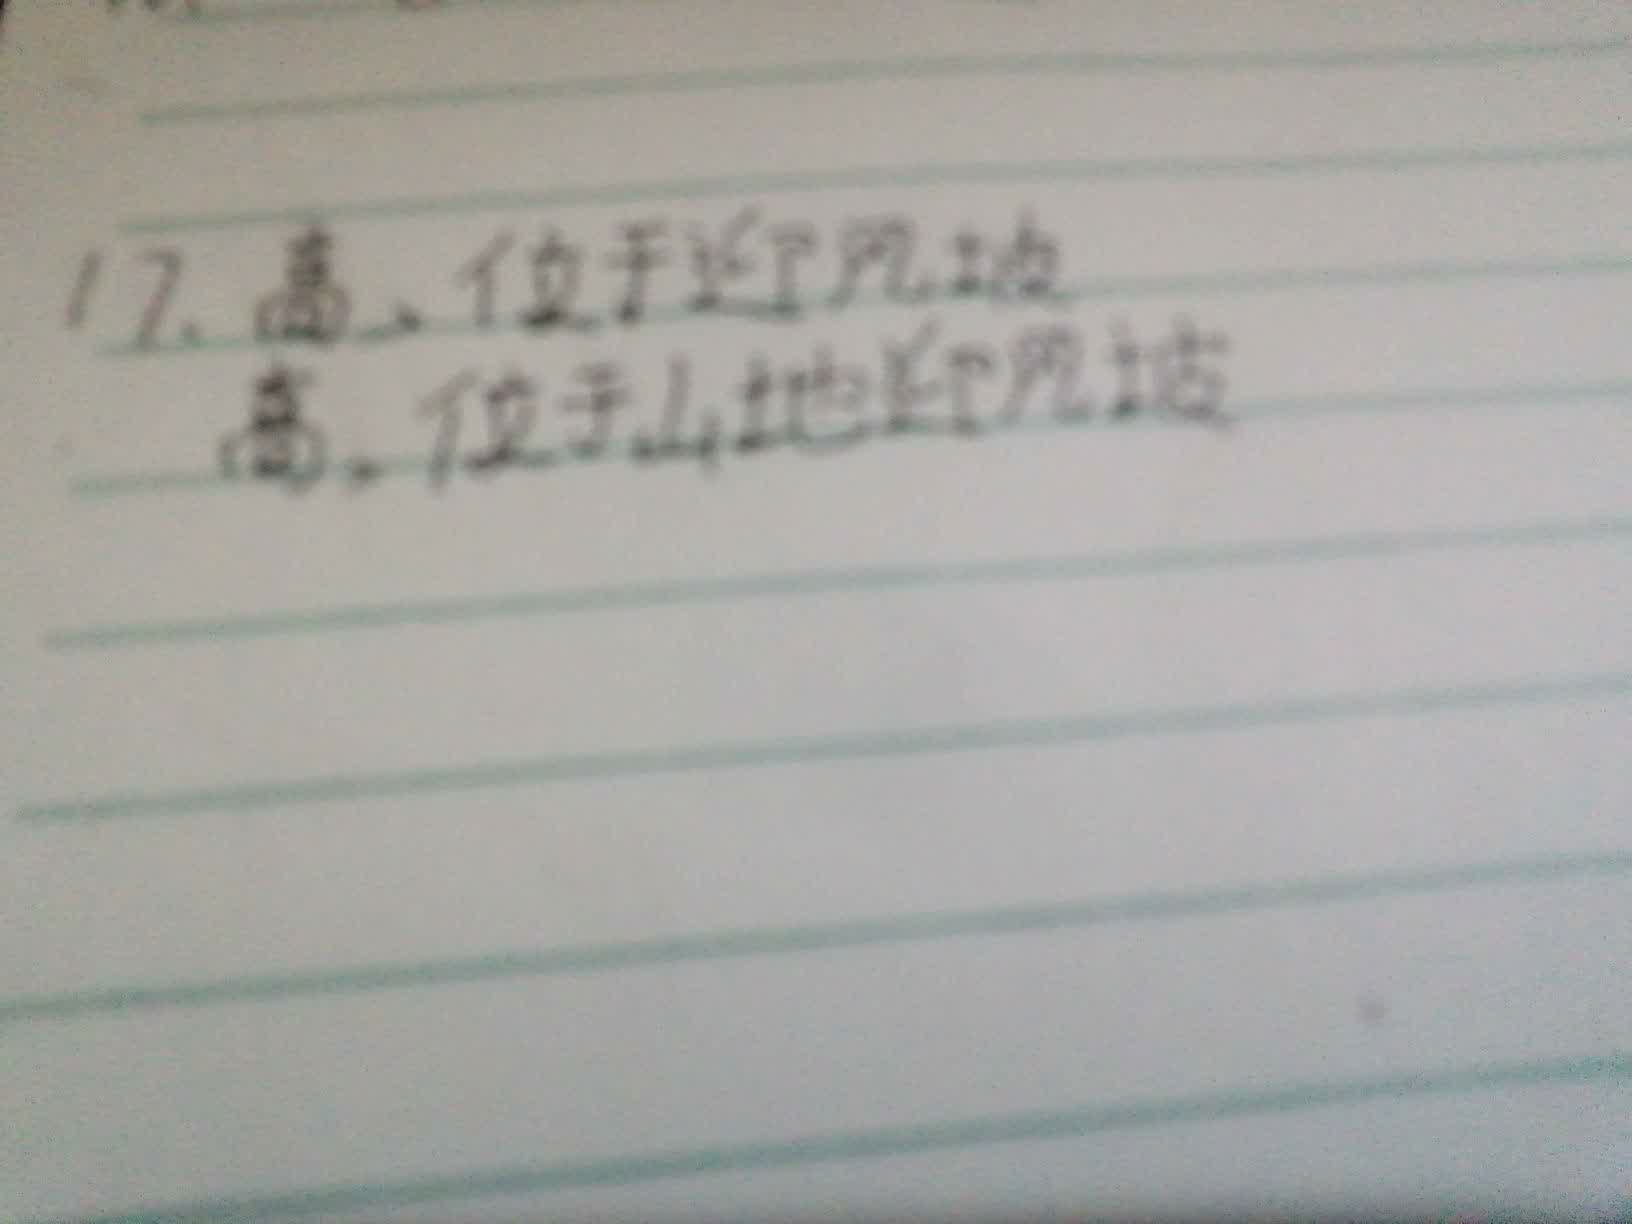 17. 高、位于迎风坡
高、位于山地迎风坡